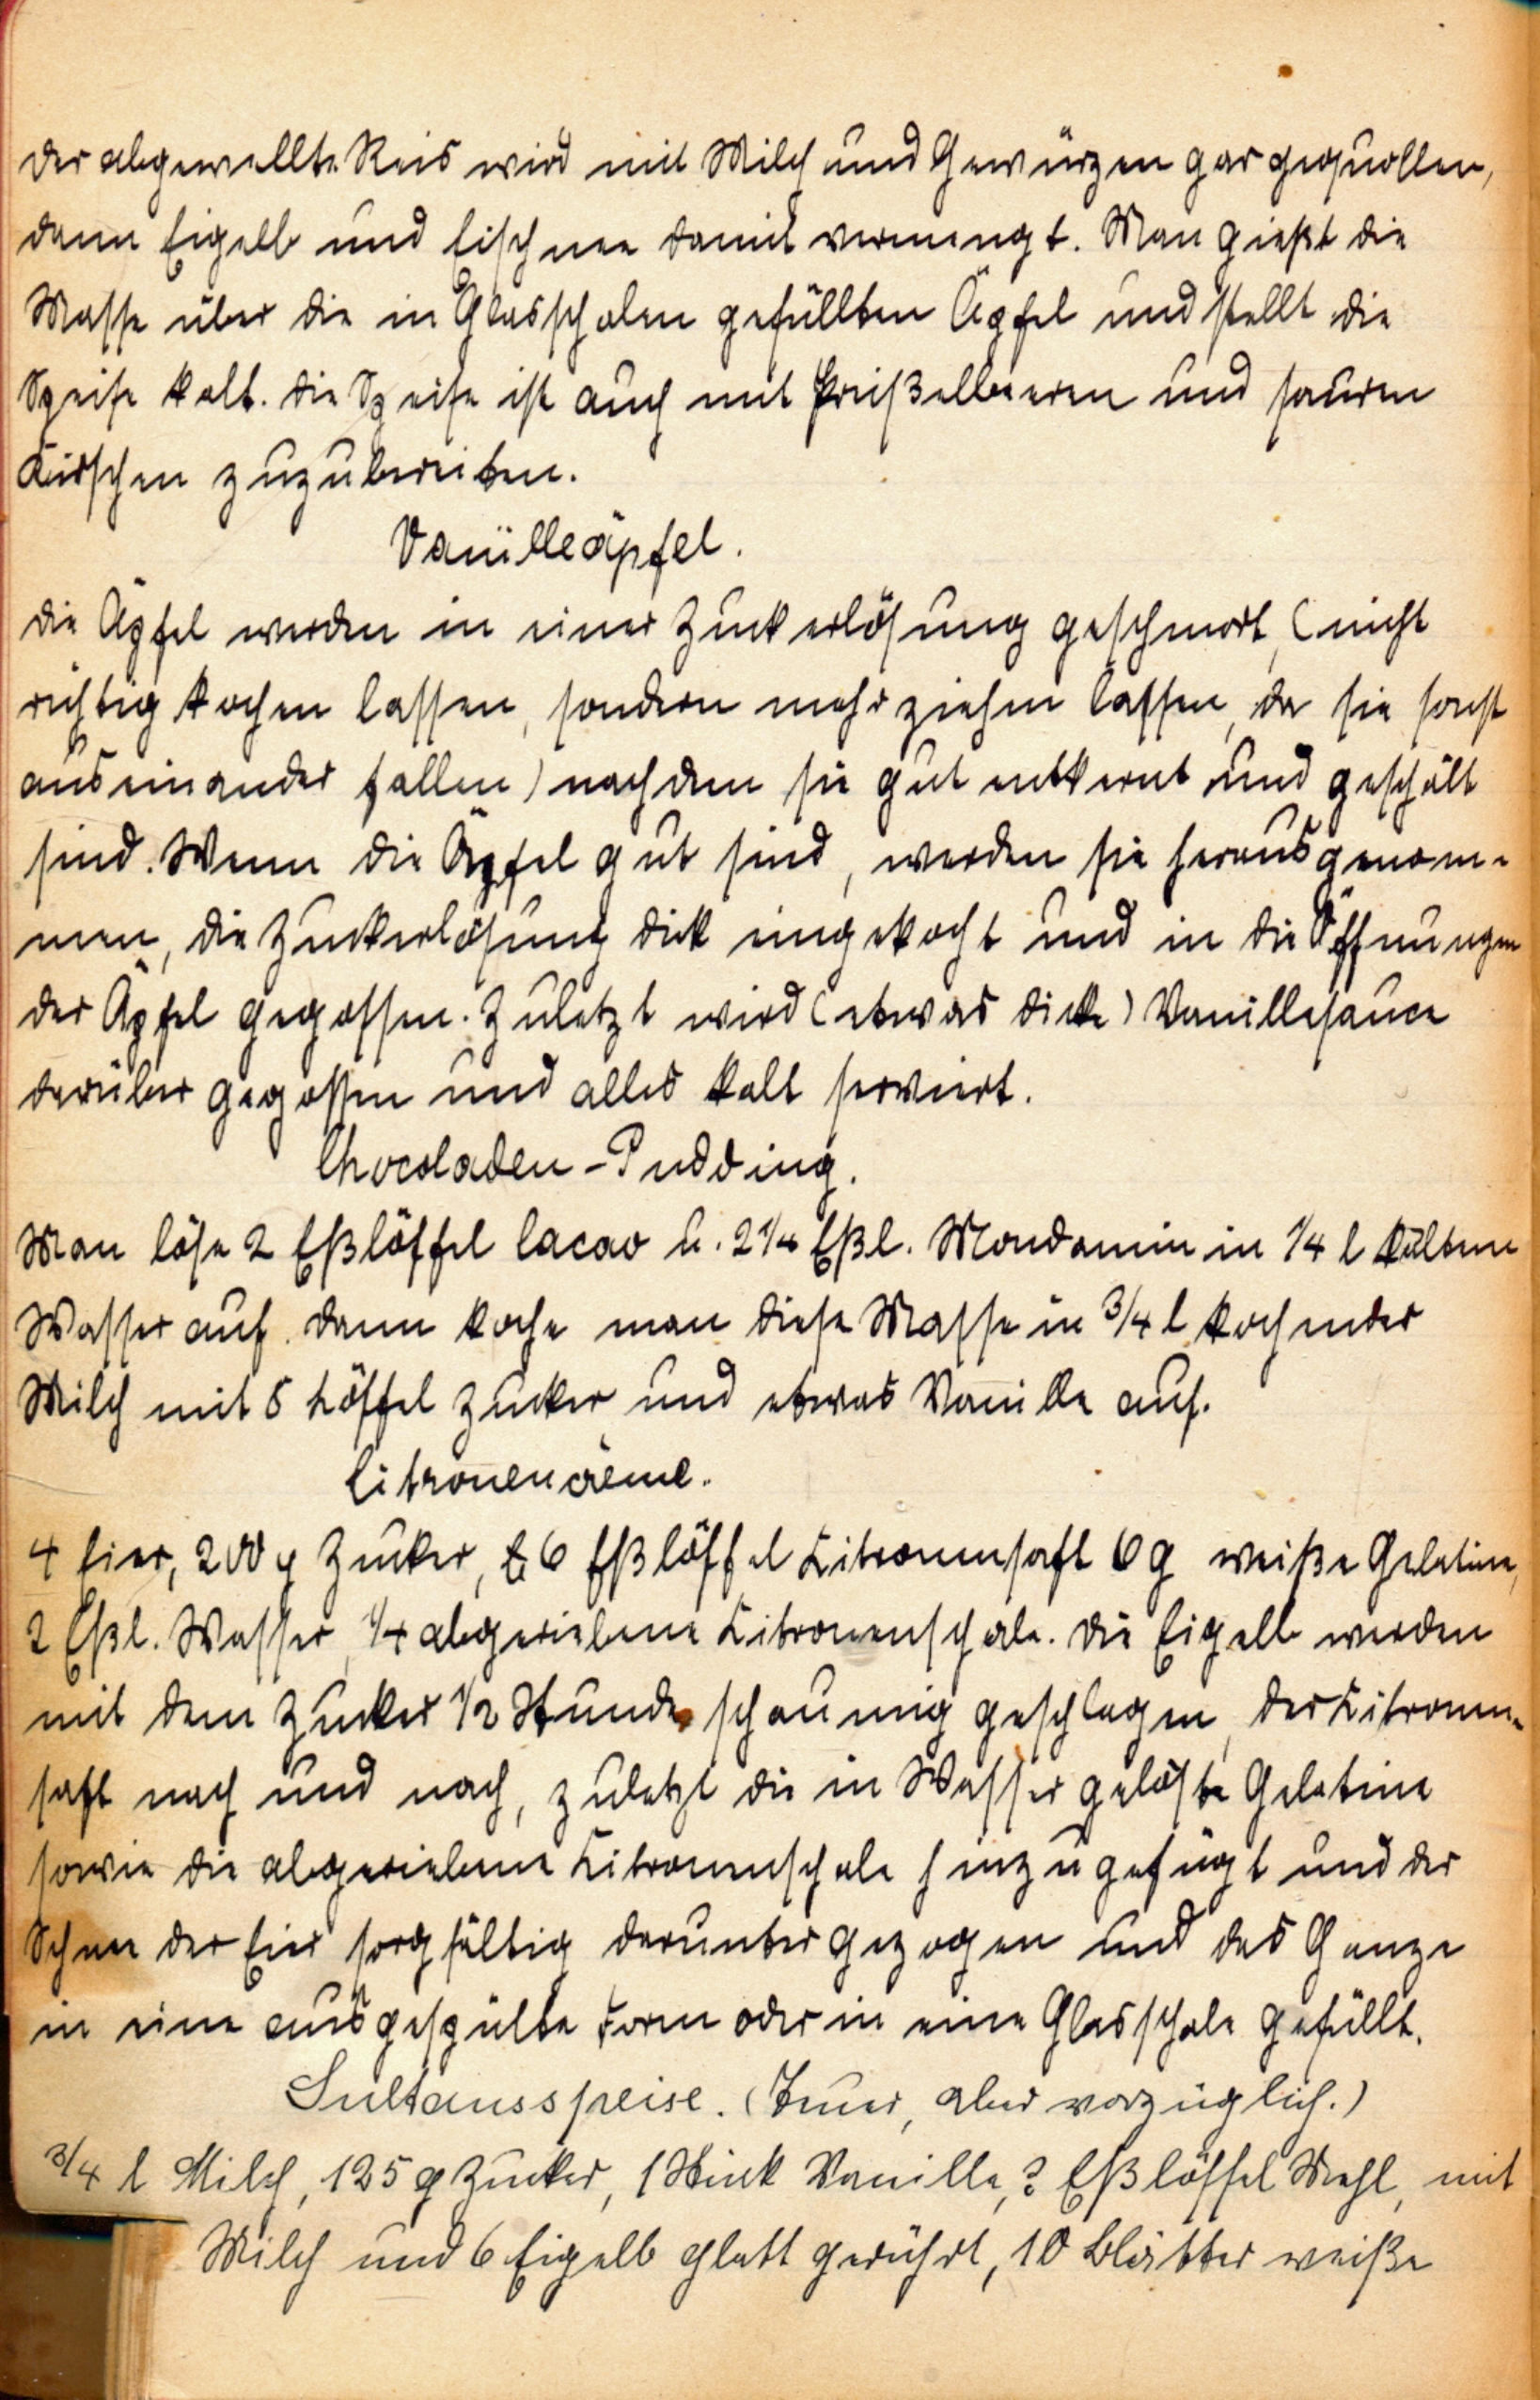 Der abgewellte Reis wird mit Milch und Gewürzen gar gequollen,
dann Eigelb und Eischnee damit vermengt. Man gießt die
Masse über die in Glasschalen gefüllten Äpfel und stellt die
Speise kalt. Die Speise ist auch mit Preißelbeeren und sauren
Kirschen zuzubereiten.
Vanilleäpfel.
Die Äpfel werden in einer Zuckerlösung geschmort, (nicht
richtig kochen lassen, sondern mehr ziehen lassen, da sie sonst
auseinander fallen) nachdem sie gut entkernt und geschält
sind. Wenn die Äpfel gut sind, werden sie herausgenom-
men, die Zuckerlösung dick eingekocht und in die Öffnungen
der Äpfel gegossen. Zuletzt wird (etwas dicke) Vanillesauce
darüber gegossen und alles kalt serviert.
Chocoladen-Pudding.
Man löse 2 Eßlöffel Cacao u. 2 1/4 Eßl. Mondamin in 1/4 l kaltem
Wasser auf. Dann koche man diese Masse in 3/4 l kochender
Milch mit 5 Löffel Zucker und etwas Vanille auf.
Citronencrème.
4 Eier, 200 g Zucker, 6 Eßlöffel Citronensaft 6 g weiße Gelatine,
2 Eßl. Wasser, 1/4 abgeriebene Citronenschale. Die Eigelb werden
mit dem Zucker 1/2 Stunde schaumig geschlagen, der Citronen-
saft nach und nach, zuletzt die in Wasser gelöste Gelatine
sowie die abgeriebene Citronenschale hinzugefügt und der
Schnee der Eier sorgfältig darunter gezogen und das Ganze
in eine ausgespülte Form oder in eine Glasschale gefüllt.
Sultansspeise. (Teuer, aber vorzüglich.)
3/4 l Milch, 125 g Zucker, 1 Stück Vanille, ? Eßlöffel Mehl, mit
Milch und 6 Eigelb glatt gerührt, 10 Blätter weiße